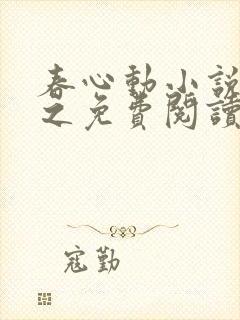 春心動小說
之免費閱讀
寇勤